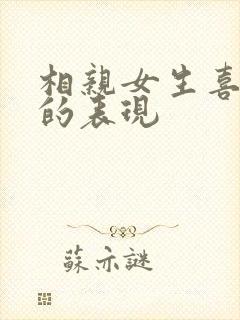 相親女生喜
的表現
蘇亦謎